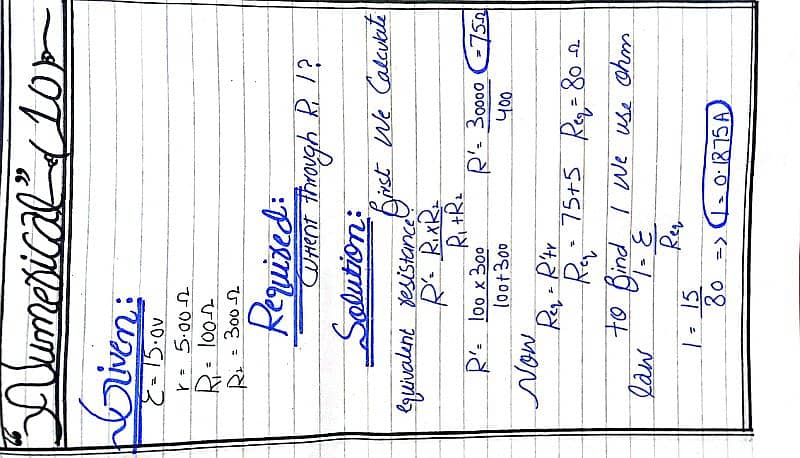 "Numerical" (10)
Given:
Ɛ = 15.0v
r = 5.00 Ω
R₁ = 100 Ω
R₂ = 300 Ω
Required:
Current through R₁ I?
Solution:
First We Calculate
equivalent resistance
R' = R₁xR₂ / R₁+R₂
R' = 100 x 300 / 100+300 R' = 30000 / 400 = 75Ω
Now
Req = R'+r
Req = 75+5 Req = 80 Ω
to Find I We use ohm
law I = Ɛ / Req
I = 15 / 80 => I = 0.1875A